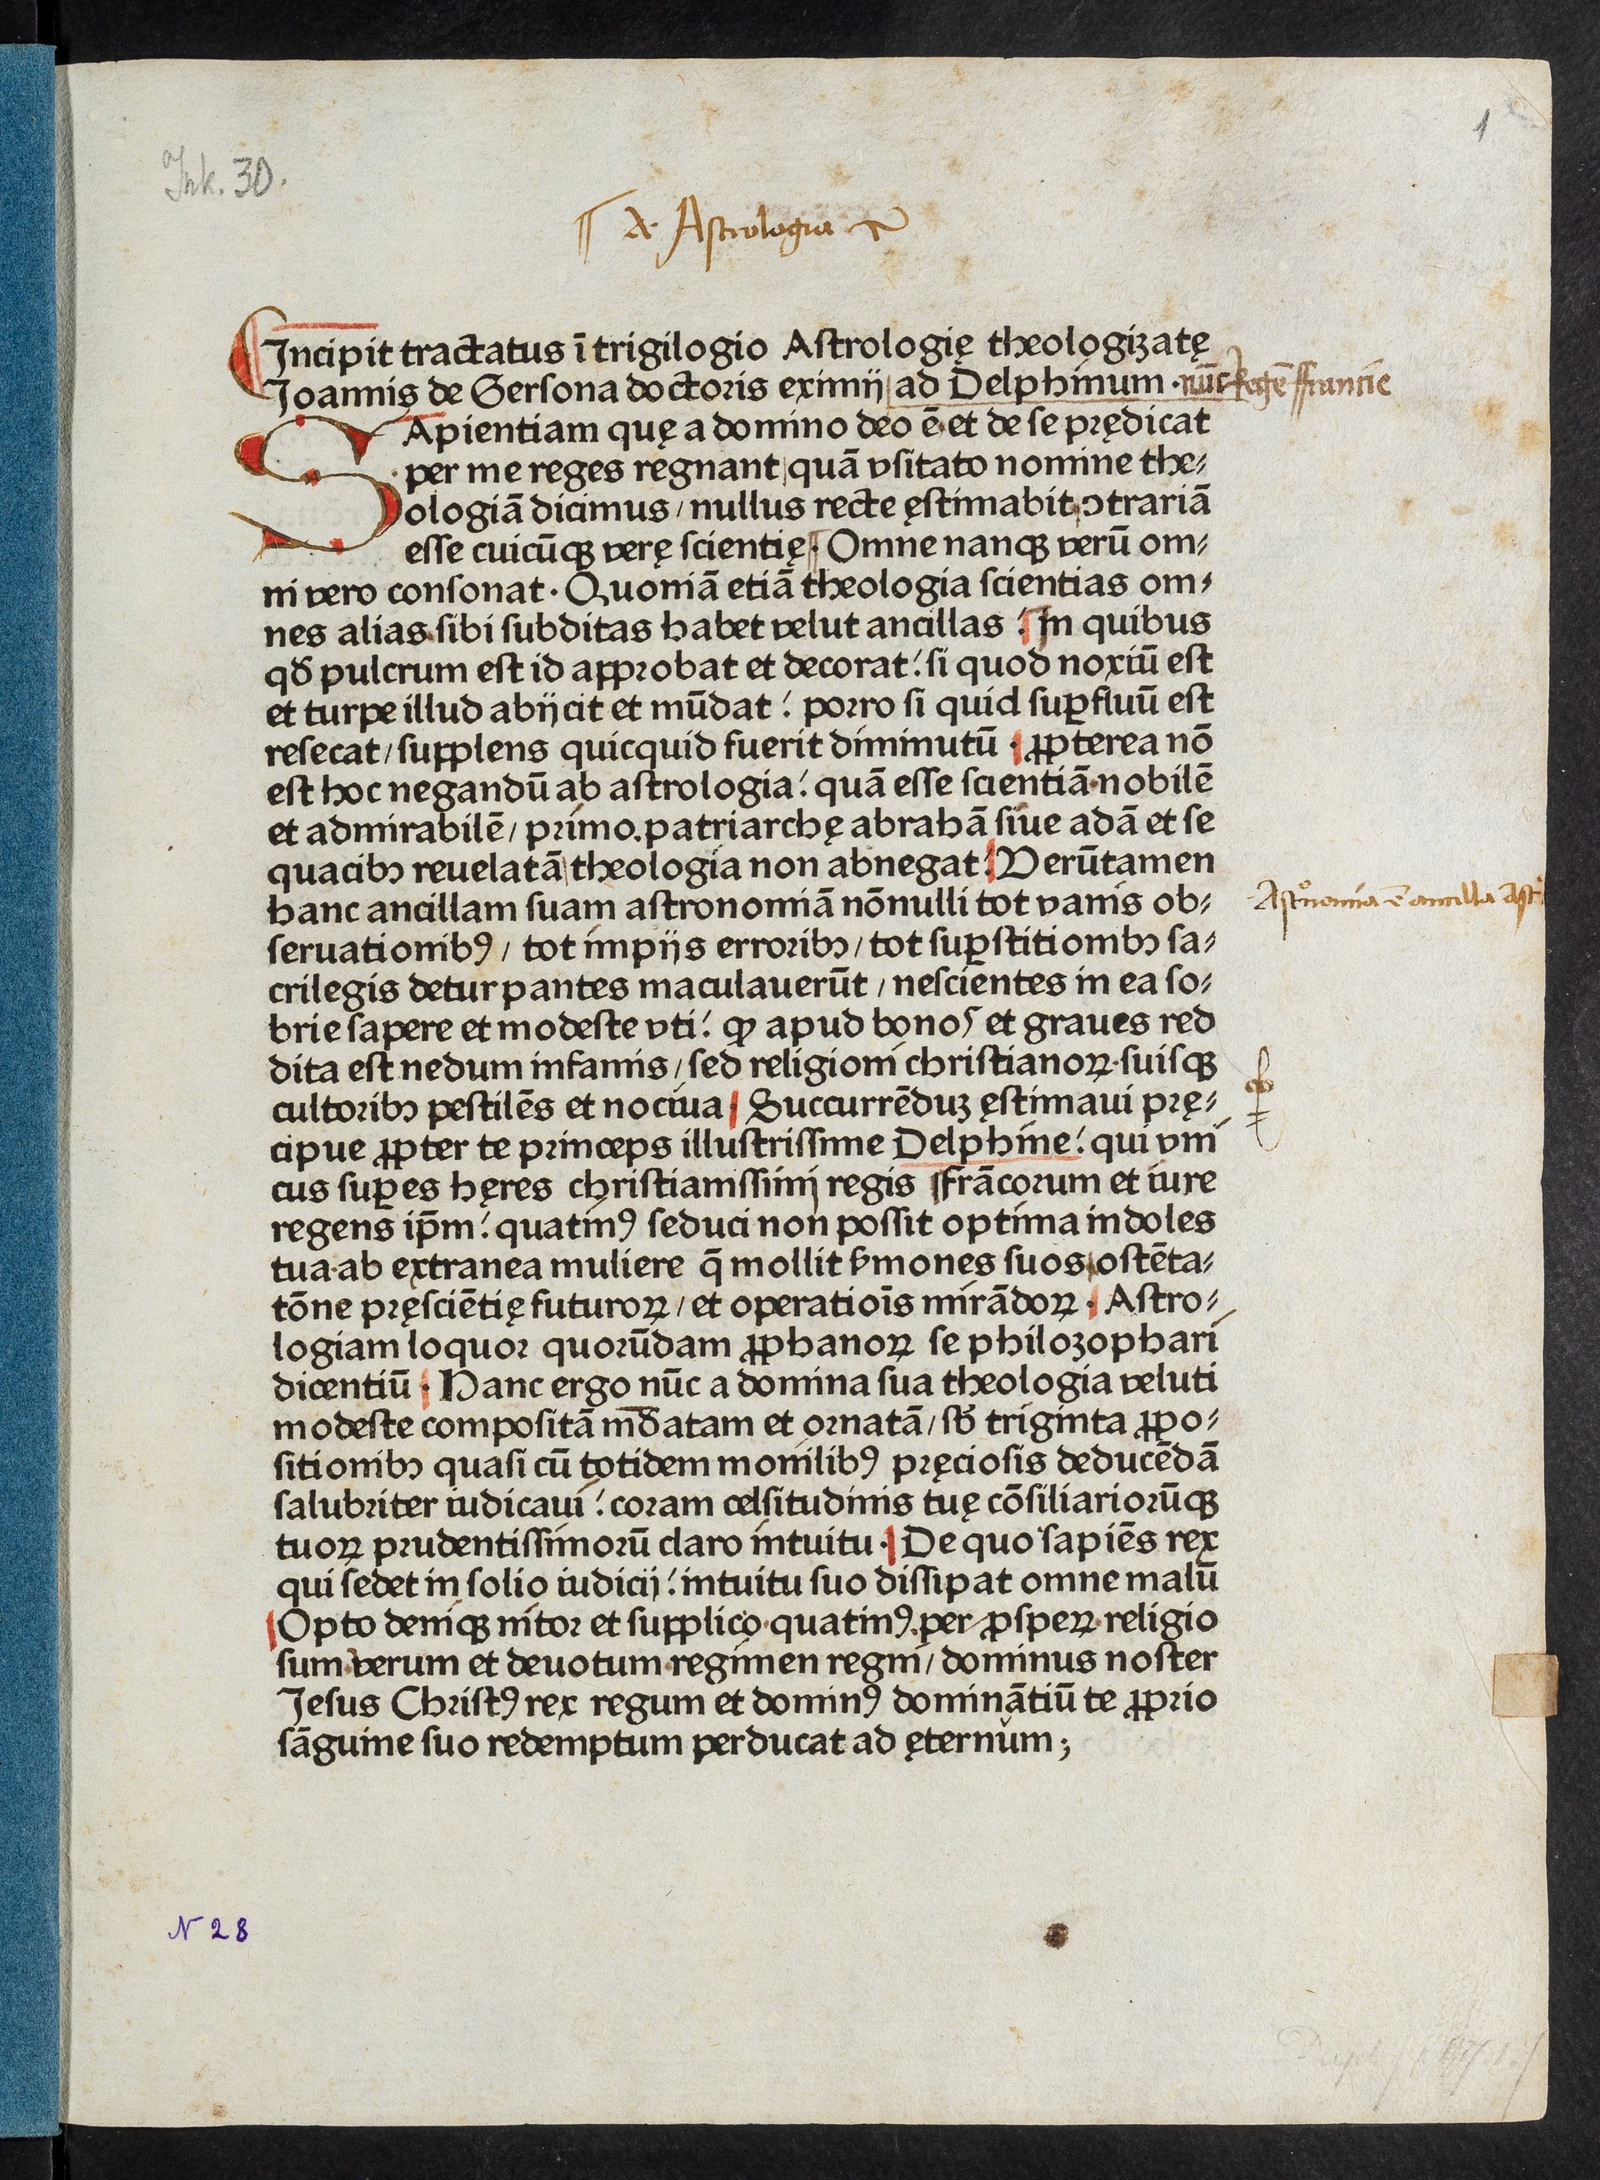 1
Ink. 30.
A. Astrologia
Incipit tractatus ī trigilogio Astrologię theologizatę
Joannis de Gersona doctoris eximij ad Delphinum · nūc regē ffrancie
SApientiam quę a domino deo ē· et de se prędicat
·per me reges regnant quā vsitato nomine the⸗
ologiā dicimus / nullus recte ęstimabit ↄtrariā
esse cuicūqꝫ verę scientię · Omne nanqꝫ verū om⸗
ni vero consonat · Quoniā etiā theologia scientias om⸗
nes alias sibi subditas habet velut ancillas : In quibus
qđ pulcrum est id approbat et decorat : si quod noxiū est
et turpe illud abijcit et mūdat : porro si quid suꝑfluū est
resecat / supplens quicquid fuerit diminutū · ꝓpterea nō
est hoc negandū ab astrologia : quā esse scientiā·nobilē
et admirabilē / primo patriarchę abrahā siue adā et se
quacibꝫ reuelatā theologia non abnegat : Verūtamen
hanc ancillam suam astronomiā nōnulli tot vanis ob⸗
Astronomia ē ancilla Astr
seruationibꝰ / tot impijs erroribꝫ / tot suꝑstitionibꝫ sa⸗
crilegis deturpantes maculauerūt / nescientes in ea so⸗
brie sapere et modeste vti : ꝙ apud bonos et graues red
dita est nedum infamis / sed religioni christianoꝝ·suisqꝫ
cultoribꝫ pestilēs et nociua · Succurrēduꝫ ęstimaui prę⸗
cipue ꝓpter te princeps illustrissime Delphine : qui vni
cus suꝑes hęres christianissimi regis ffrācorum et iure
regens ip̄m : quatinꝰ seduci non possit optima indoles
tua·ab extranea muliere q̄ mollit ẜmones suos ostēta⸗
tōne pręsciētię futuroꝝ / et operatiōis mirādoꝝ · Astro⸗
logiam loquor quorūdam ꝓphanoꝝ se philozophari
dicentiū · Hanc ergo nūc a domina sua theologia veluti
modeste compositā mūdatam et ornatā / sb̄ triginta ꝓpo⸗
sitionibꝫ quasi cū totidem monilibꝰ pręciosis deducēdā
salubriter iudicaui : coram celsitudinis tuę cōsiliariorūqꝫ
tuoꝝ prudentissimorū claro intuitu · De quo sapiēs rex
qui sedet in solio iudicij : intuitu suo dissipat omne malū
Opto deniqꝫ nitor et supplico·quatinꝰ per ꝓspeꝝ·religio
sum·verum et deuotum·regimen regni / dominus noster
Jesus Christꝰ rex regum et dominꝰ dominātiū te ꝓprio
sāguine suo redemptum perducat ad ęternum ;
N 28